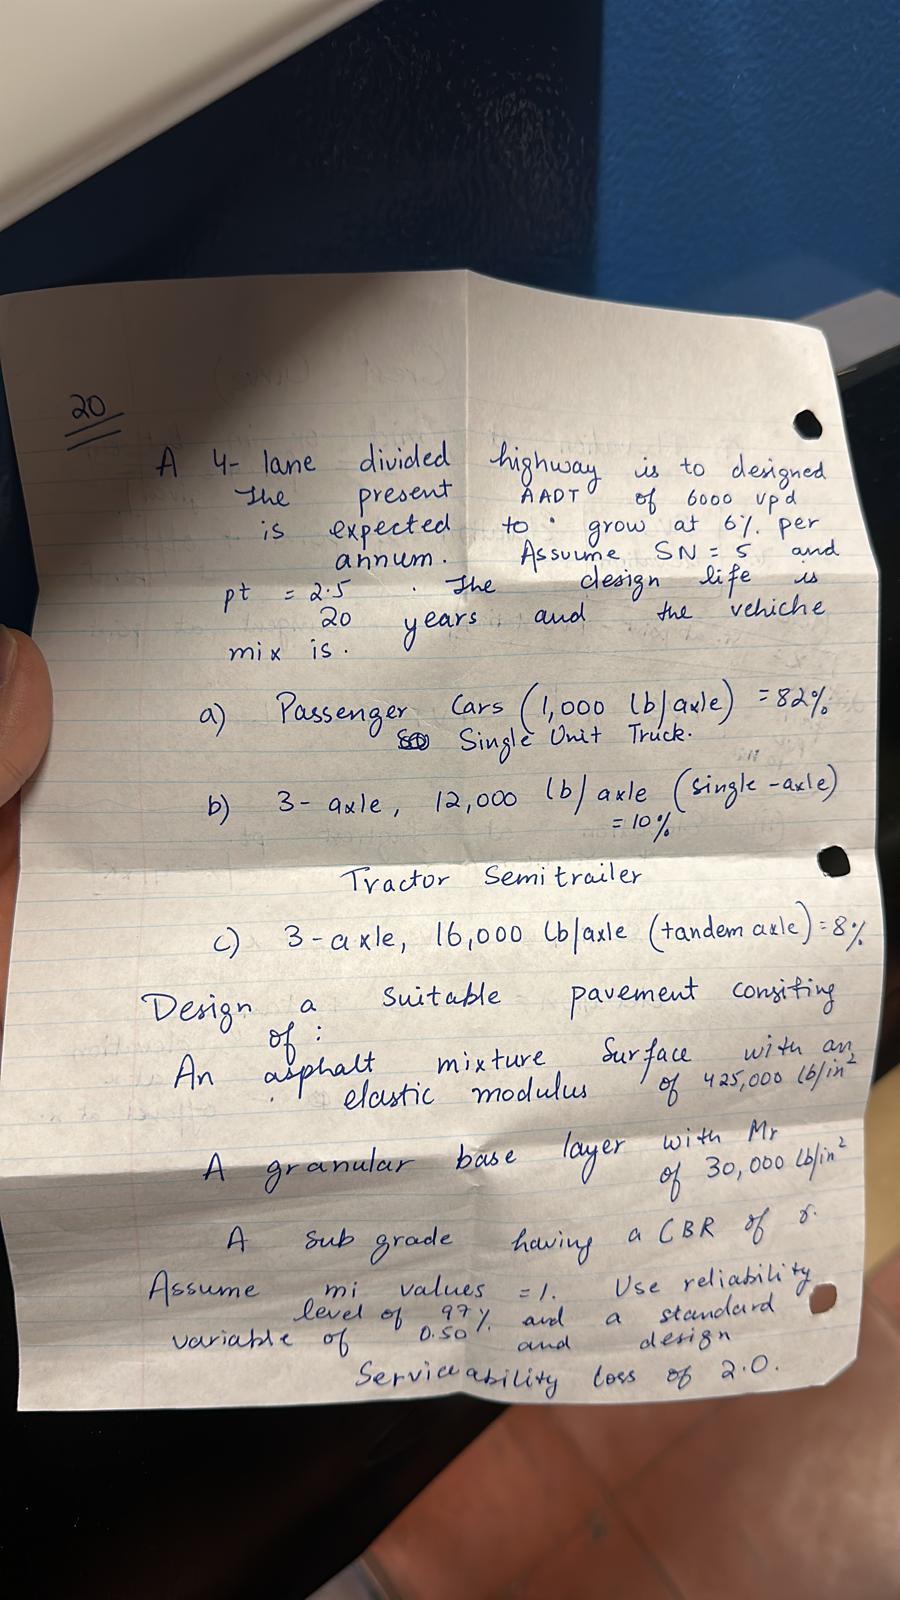 20
A 4- lane divided highway is to designed
The present AADT of 6000 vpd
is expected to grow at 6% per
annum. Assume SN = 5 and
pt = 2.5 . The design life is
20 years and the vehicle
mix is.
a) Passenger Cars (1,000 lb/axle) = 82%
Single Unit Truck.
b) 3- axle, 12,000 lb/axle (single-axle)
= 10%
Tractor Semitrailer
c) 3-axle, 16,000 lb/axle (tandem axle) = 8%
Design a suitable pavement consiting
of :
An asphalt mixture surface with an
elastic modulus of 425,000 lb/in²
A granular base layer with Mr
of 30,000 lb/in²
A sub grade having a CBR of
Assume mi values = 1. Use reliability
level of 97% and a standard
variable of 0.50 and design
Serviceability loss of 2.0.